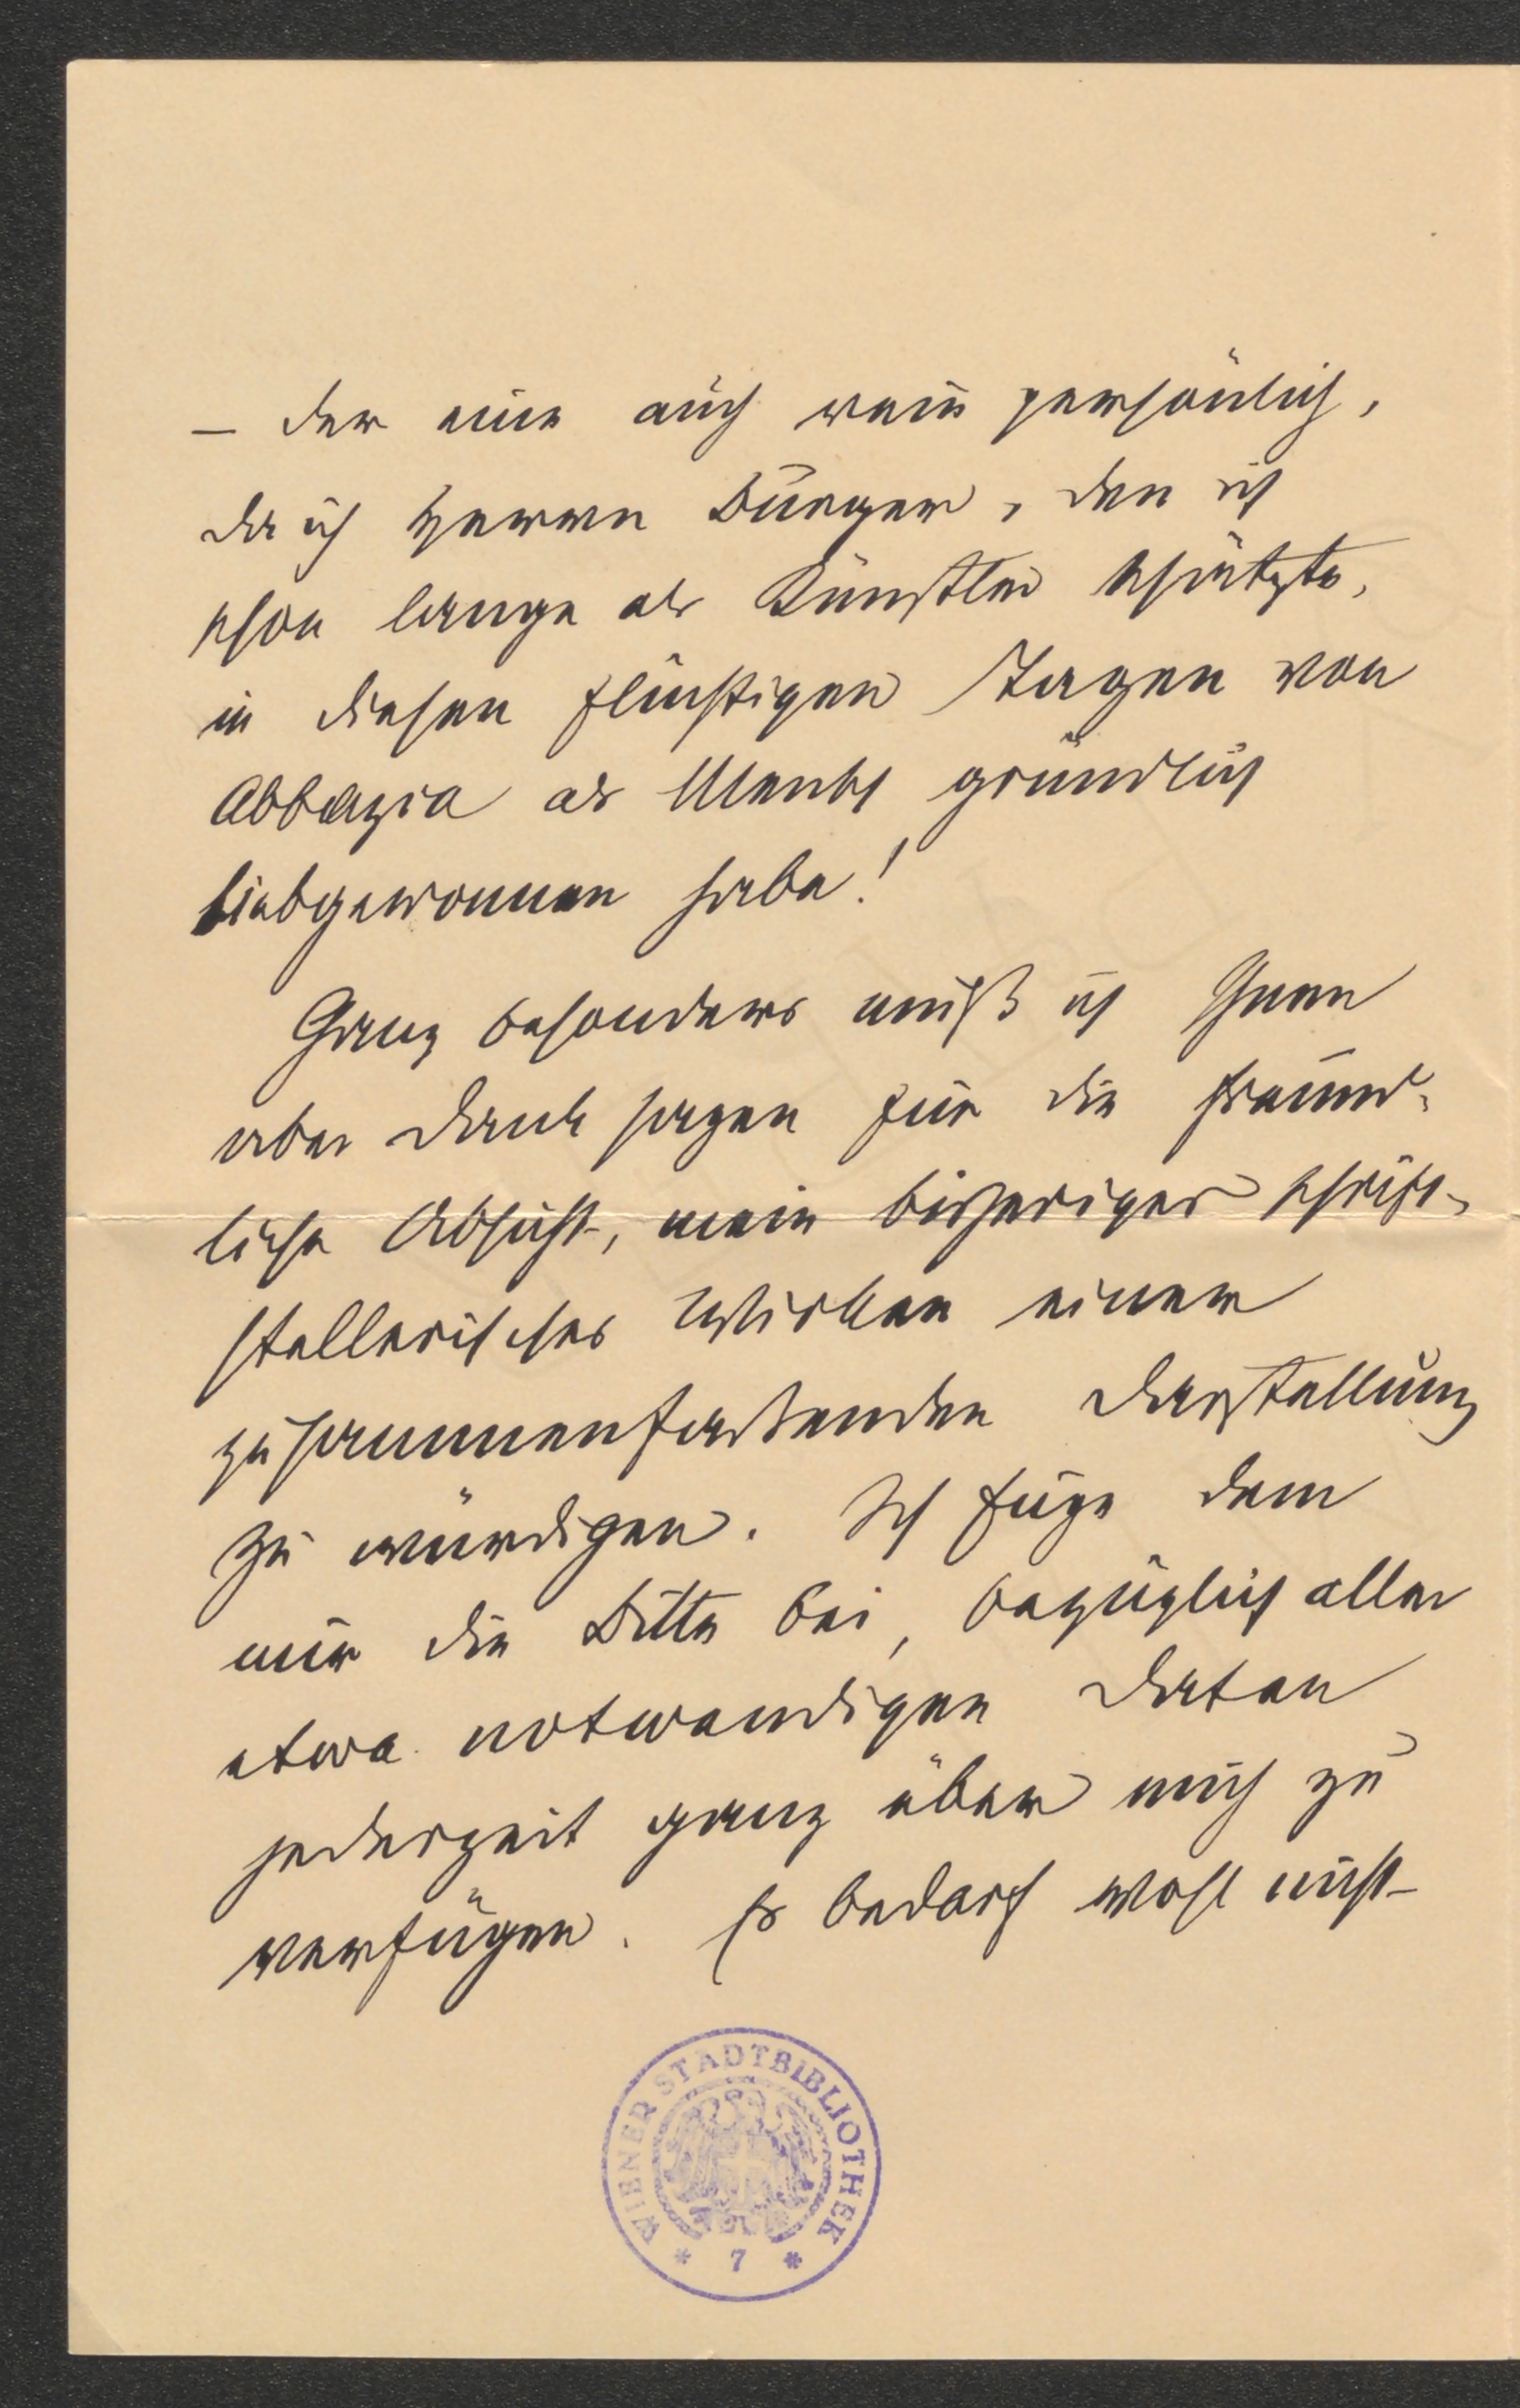 – der eine auch rein persönlich,
da ich Herrn Bürger, den ich
schon lange als Künstler schätzte,
in diesen flüchtigen Tagen von
Abbazia als Mensch gründlich
liebgewonnen habe!
Ganz besonders muß ich Ihnen
aber Dank sagen für die freund-
liche Absicht, mein bisheriges schrift-
stellerisches Wirken einer
zusammenfassenden Darstellung
zu würdigen. Ich füge dem
nur die Bitte bei, bezüglich aller
etwa notwendigen Daten
jederzeit ganz über mich zu
verfügen. Es bedarf wohl nicht
WIENER STADTBIBLIOTHEK
* 7 *